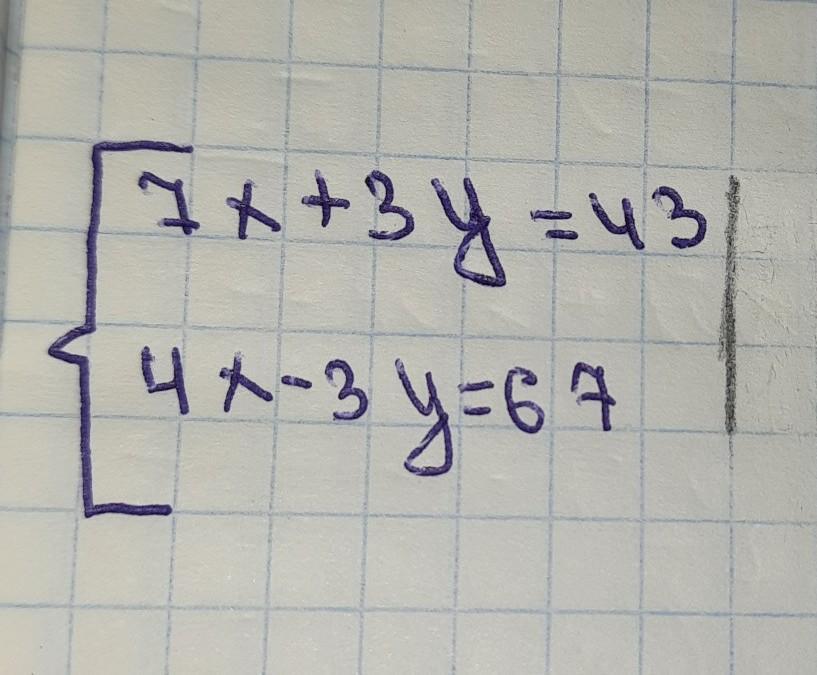 7x+3y=43
4x-3y=67